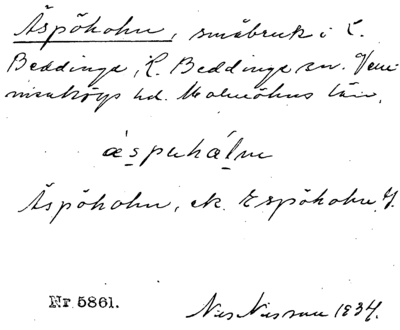 Äspöholm, småbruk i L.
Beddinge, L. Beddinge sn. Vem-
menhögs hd. Malmöhus län.
áspuhálm
Äspöholm, ek. Espöholm J.
Nr 5861.
Nils Nilsson 1934.